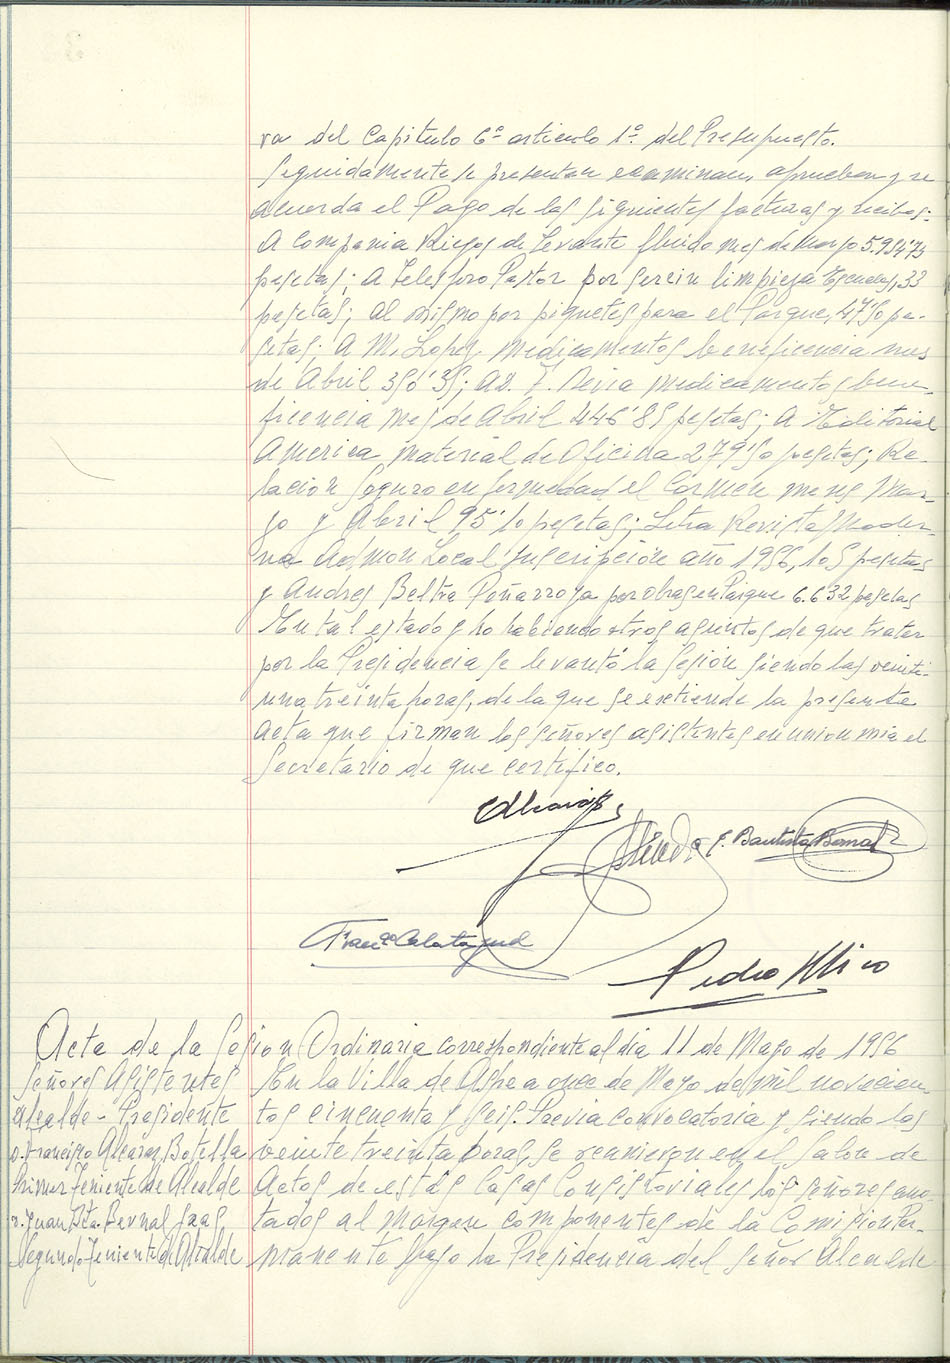 ra del Capitulo 6º articulo 1º del Presupuesto.
Seguidamente se presentan examinan, aprueban y se
acuerda el Pago de las siguientes facturas y recibos:
A Compania Riegos de Levante fluido mes de Marzo 5.934'75
pesetas; A Telesforo Pastor por servir limpieza Escuelas, 33
pesetas; al mismo por piquetes para el Parque, 47'50 pe-
setas; A M. Lopez, Medicamentos beneficencia mes
de Abril 356'35; a D. F. Seria medicamentos bene-
ficencia mes de Abril 446'85 pesetas; A Editorial
America, Material de Oficida 279'50 pesetas; Re-
lacion Seguro enfermedad el Carmen meses Mar-
zo y Abril 95'10 pesetas; Letra Revista Moder-
na Admon Local Inscripción año 1956, 105 pesetas
y Andres Beltra Peñarroya por obras en Parque 6.632 pesetas
En tal estado y no habiendo otros asuntos de que tratar
por la Presidencia se levantó la sesión siendo las veinti-
una treinta horas, de la que se extiende la presente
acta que firman los señores asistentes en union mia el
Secretario de que certifico.
Alcaraz
J. Bautista Bernal
Franco Calatayud
Pedro Mico
Acta de la Sesion Ordinaria correspondiente al dia 11 de Mayo de 1956
Señores Asistentes
Alcalde - Presidente
D. Francisco Alcaraz Botella
Primer Teniente de Alcalde
D. Juan Bta. Bernal Gras,
Segundo Teniente de Alcalde
En la Villa de Aspe a once de Mayo de mil novecien-
tos cincuenta y seis. Previa convocatoria y siendo las
veinte treinta horas, se reunieron en el Salon de
Actos de estas Casas Consistoriales los señores ano-
tados al margen componentes de la Comision Per-
manente bajo la Presidencia del Señor Alcalde